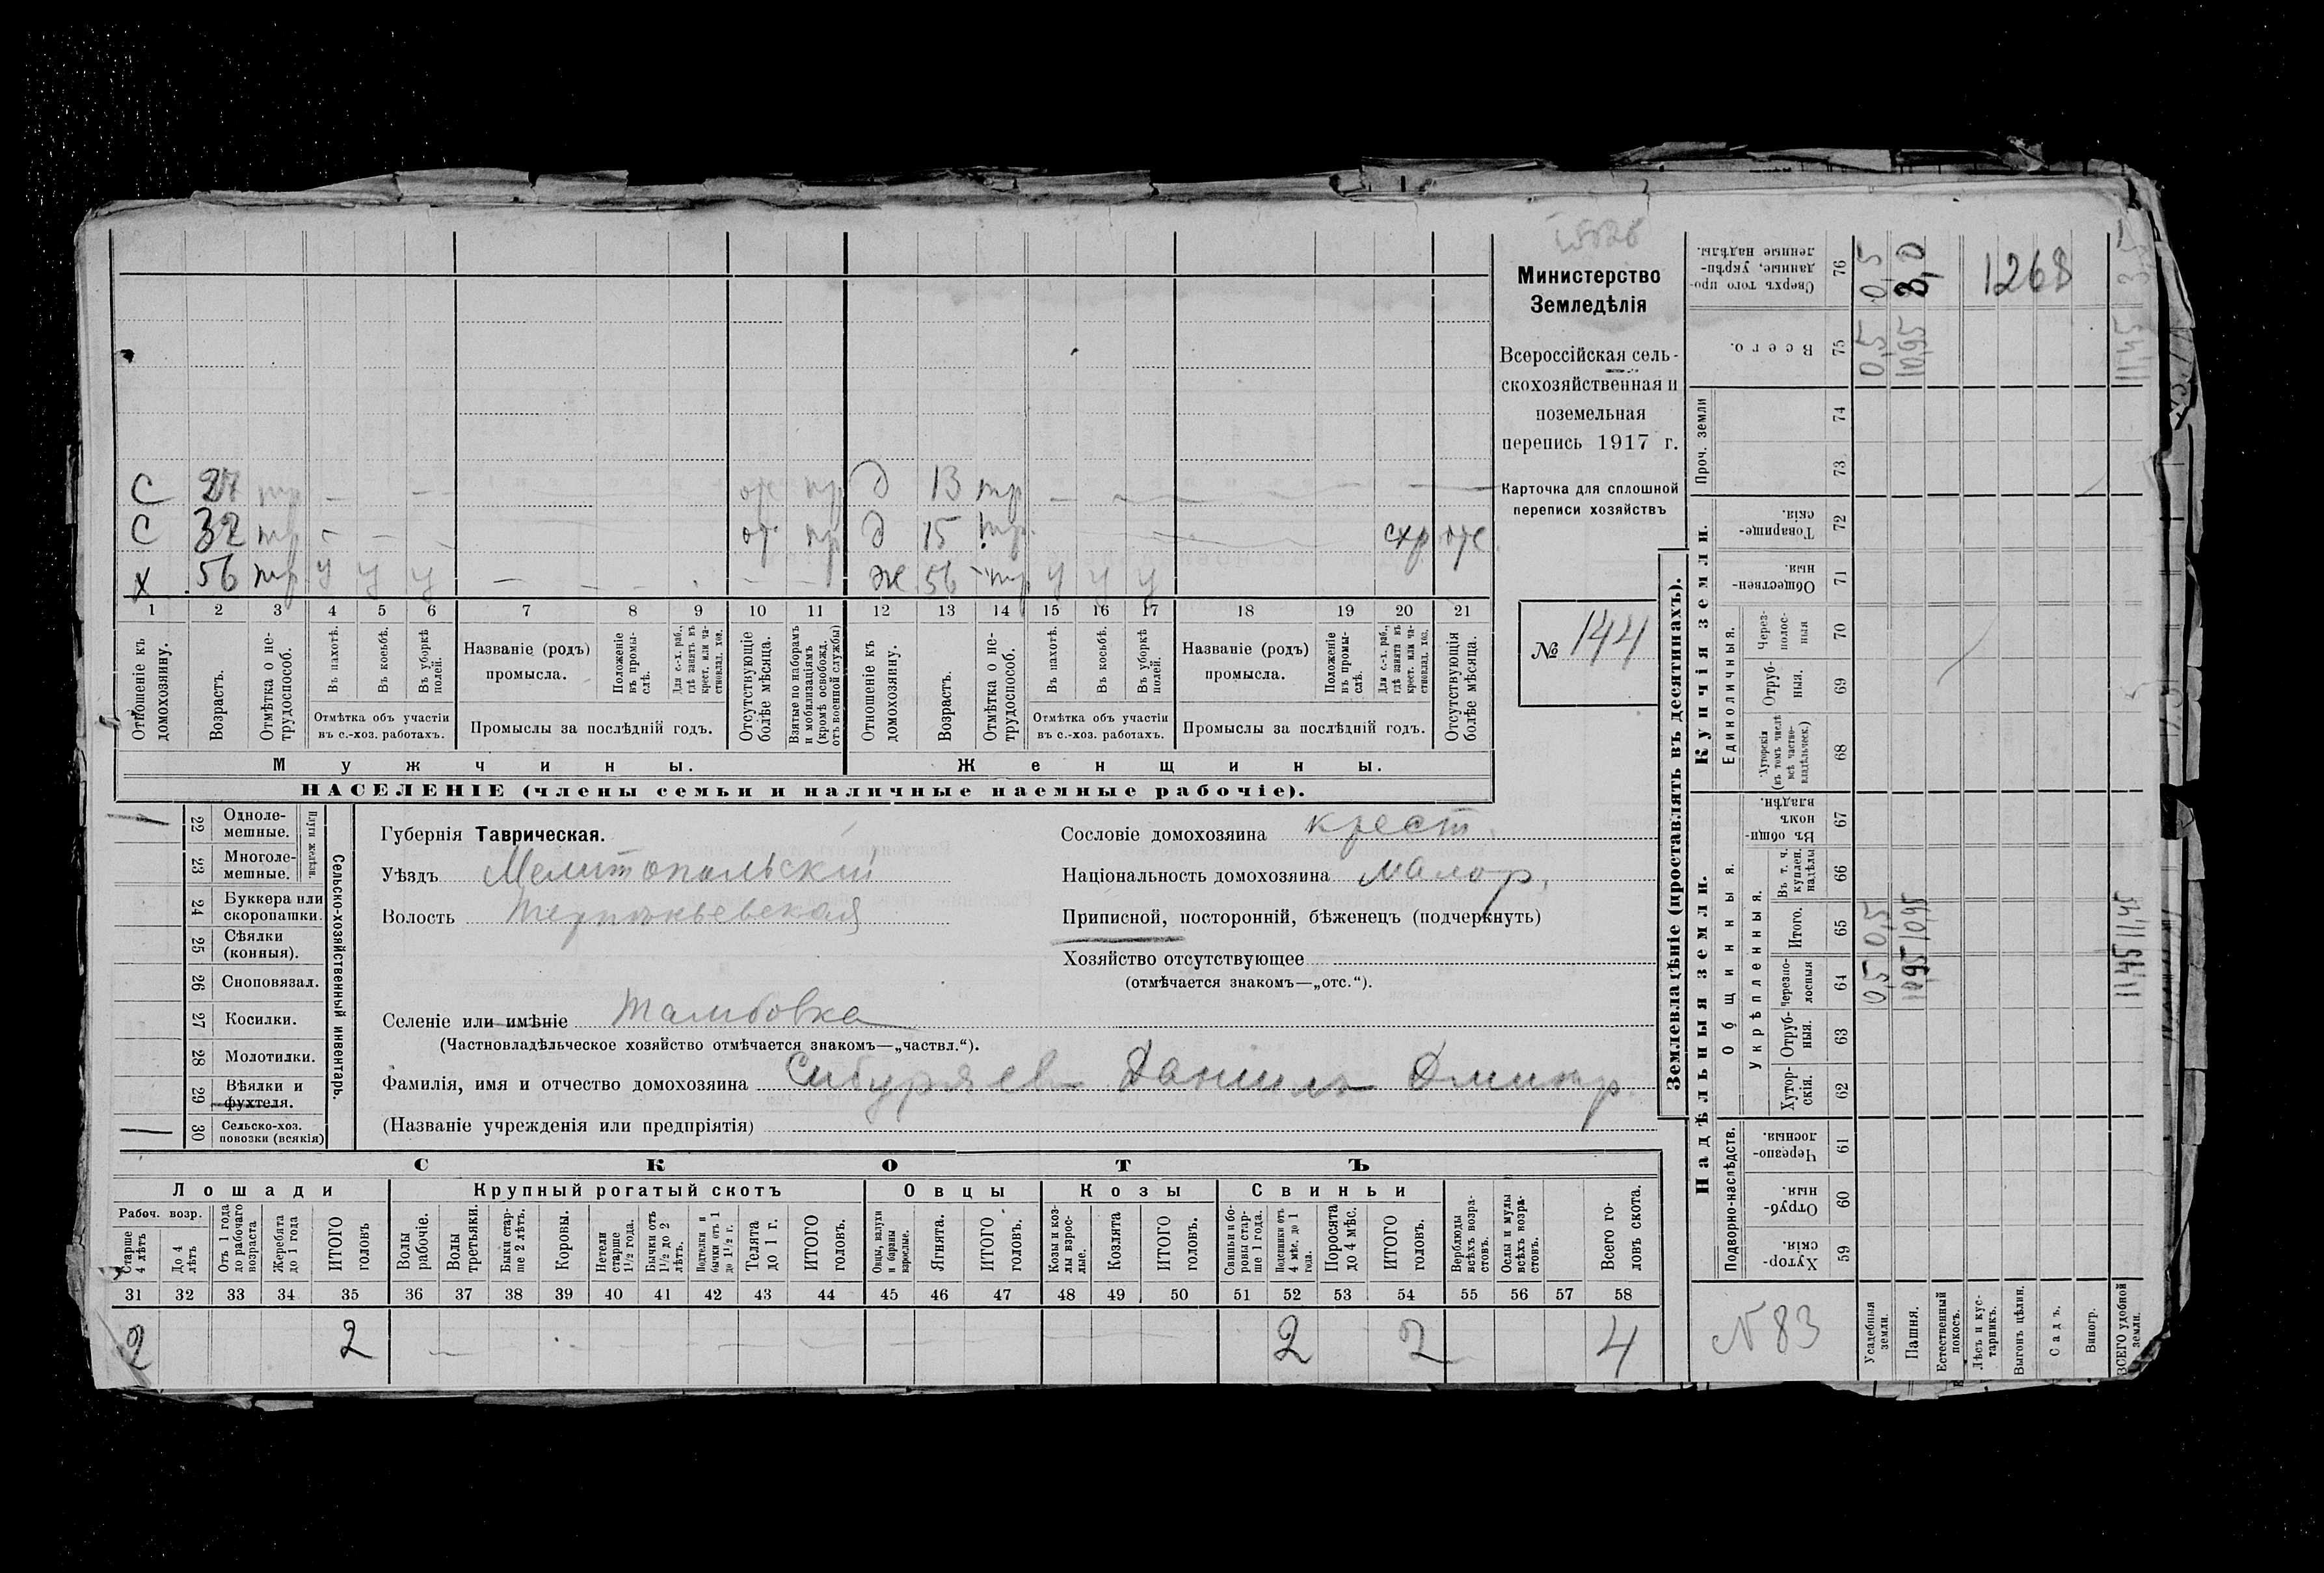 Министерство
Земледѣлія
Всероссійская сель-
скохозяйственная и
поземельная
перепись 1917 г.
Карточка для сплошной
переписи хозяйствъ
№ 144
С 27 тр — — отс пр Д 13 тр — — — — — —
С 32 тр - - - от пр Д 15 тр. — — схр отс.
Х 56 тр у у у — — - . — — Ж 56 тр у у у
1 2 3 4 5 6 7 8 9 10 11 12 13 14 15 16 17 18 19 20 21
Отношеніе къ домохозяину.
Возрастъ.
Отмѣтка о не-трудоспособ.
Въ пахотѣ.
Въ косьбѣ.
Въ уборкѣ полей.
Отмѣтка объ участіи
въ с.-хоз. работахъ.
Названіе (родъ)
промысла.
Положеніе въ промы-слѣ.
Для с.-х. раб., гдѣ занятъ въ крест. или ча-стновлад. хоз.
Промыслы за послѣдній годъ.
Отсутствующіе болѣе мѣсяца.
Взятые по наборамъ и мобилизаціямъ (кромѣ освобожд. отъ военной службы)
Отношеніе къ домохозяину.
Возрастъ.
Отмѣтка о не-трудоспособ.
Въ пахотѣ.
Въ косьбѣ.
Въ уборкѣ полей.
Отмѣтка объ участіи
въ с.-хоз. работахъ.
Названіе (родъ)
промысла.
Положеніе въ промы-слѣ.
Для с.-х. раб., гдѣ занята въ крест. или ча-стновлад. хоз.
Промыслы за послѣдній годъ.
Отсутствующія болѣе мѣсяца.
Мужчины.
Женщины.
НАСЕЛЕНІЕ (члены семьи и наличные наемные рабочіе).
22 Одноле-
мешные.
23 Многоле-
мешные.
Плуги желѣзн.
24 Буккера или
скоропашки.
25 Сѣялки
(конныя).
26 Сноповязал.
27 Косилки.
28 Молотилки.
29 Вѣялки и
фухтеля.
30 Сельско-хоз.
повозки (всякія)
Сельско-хозяйственный инвентарь.
Губернія Таврическая.
Уѣздъ Мелитопольскій
Волость
Селеніе или имѣніе Тамбовка
(Частновладѣльческое хозяйство отмѣчается знакомъ—„частвл.“).
Фамилія, имя и отчество домохозяина Сибуряев Данило Дмитр.
(Названіе учрежденія или предпріятія)
Сословіе домохозяина крест.
Національность домохозяина малор.
Приписной, посторонній, бѣженецъ (подчеркнуть)
Хозяйство отсутствующее
(отмѣчается знакомъ—„отс.“).
СКОТЪ
Лошади
Крупный рогатый скотъ
Овцы
Козы
Свиньи
Рабоч. возр.
Старше 4 лѣтъ
До 4 лѣтъ
Отъ 1 года до рабочаго возраста
Жеребята до 1 года
ИТОГО головъ
Волы рабочіе.
Волы третьяки.
Быки стар-ше 2 лѣтъ.
Коровы.
Нетели старше 1½ года.
Бычки отъ 1½ до 2 лѣтъ.
Подтелки и бычки отъ 1 до 1½ г.
Телята до 1 г.
ИТОГО головъ.
Овцы, валухи и бараны взрослые.
Ягнята.
ИТОГО головъ.
Козы и коз-лы взрос-лые.
Козлята
ИТОГО головъ.
Свиньи и бо-ровы стар-ше 1 года.
Подсвинки отъ 4 мѣс. до 1 года.
Поросята до 4 мѣс.
ИТОГО головъ.
Верблюды всѣхъ возра-стовъ.
Ослы и мулы всѣхъ возра-стовъ.
Всего го-ловъ скота.
31 32 33 34 35 36 37 38 39 40 41 42 43 44 45 46 47 48 49 50 51 52 53 54 55 56 57 58
2 2 2 2 4
Землевладѣніе (проставлять въ десятинахъ).
Надѣльныя земли.
Купчія земли.
Подворно-наслѣдств.
Общинныя.
Укрѣпленныя.
Единоличныя.
Проч. земли
Хутор-скія. 59
Отруб-ныя. 60
Черезпо-лосныя. 61
Хутор-скія. 62
Отруб-ныя. 63
Черезпо-лосныя 64
Итого. 65
Въ т. ч. купчен. надѣлы 66
Въ общи-номъ владѣн. 67
Хуторскія (въ томъ числѣ всѣ частно-владѣльческ.) 68
Отруб-ныя. 69
Через-полос-ныя 70
Обществен-ныя. 71
Товарище-скія. 72
73
74
Всего. 75
Сверхъ того про-данные, укрѣп-ленные надѣлы. 76
Усадебныя земли. 0,5 0,5 0,5 0,5
Пашня. 10,95 10,95 10,95 3,0
Естественный покосъ.
Лѣсъ и кус-тарникъ.
Выгонъ цѣлин.
Садъ.
Виногр.
ВСЕГО удобной земли. 11,45 11,45 11,45 3,5
1268
N 83